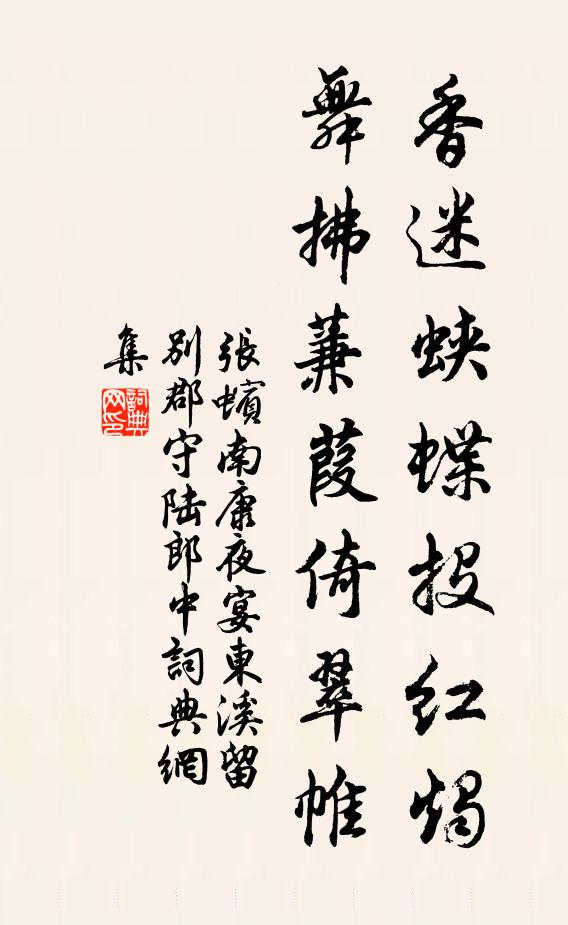 香迷蛺蝶投红燭
舞拂蒹葭倚翠帷
張蠙南康夜宴東溪留
别郡守陆郎中詞典網
集
詞典
网印